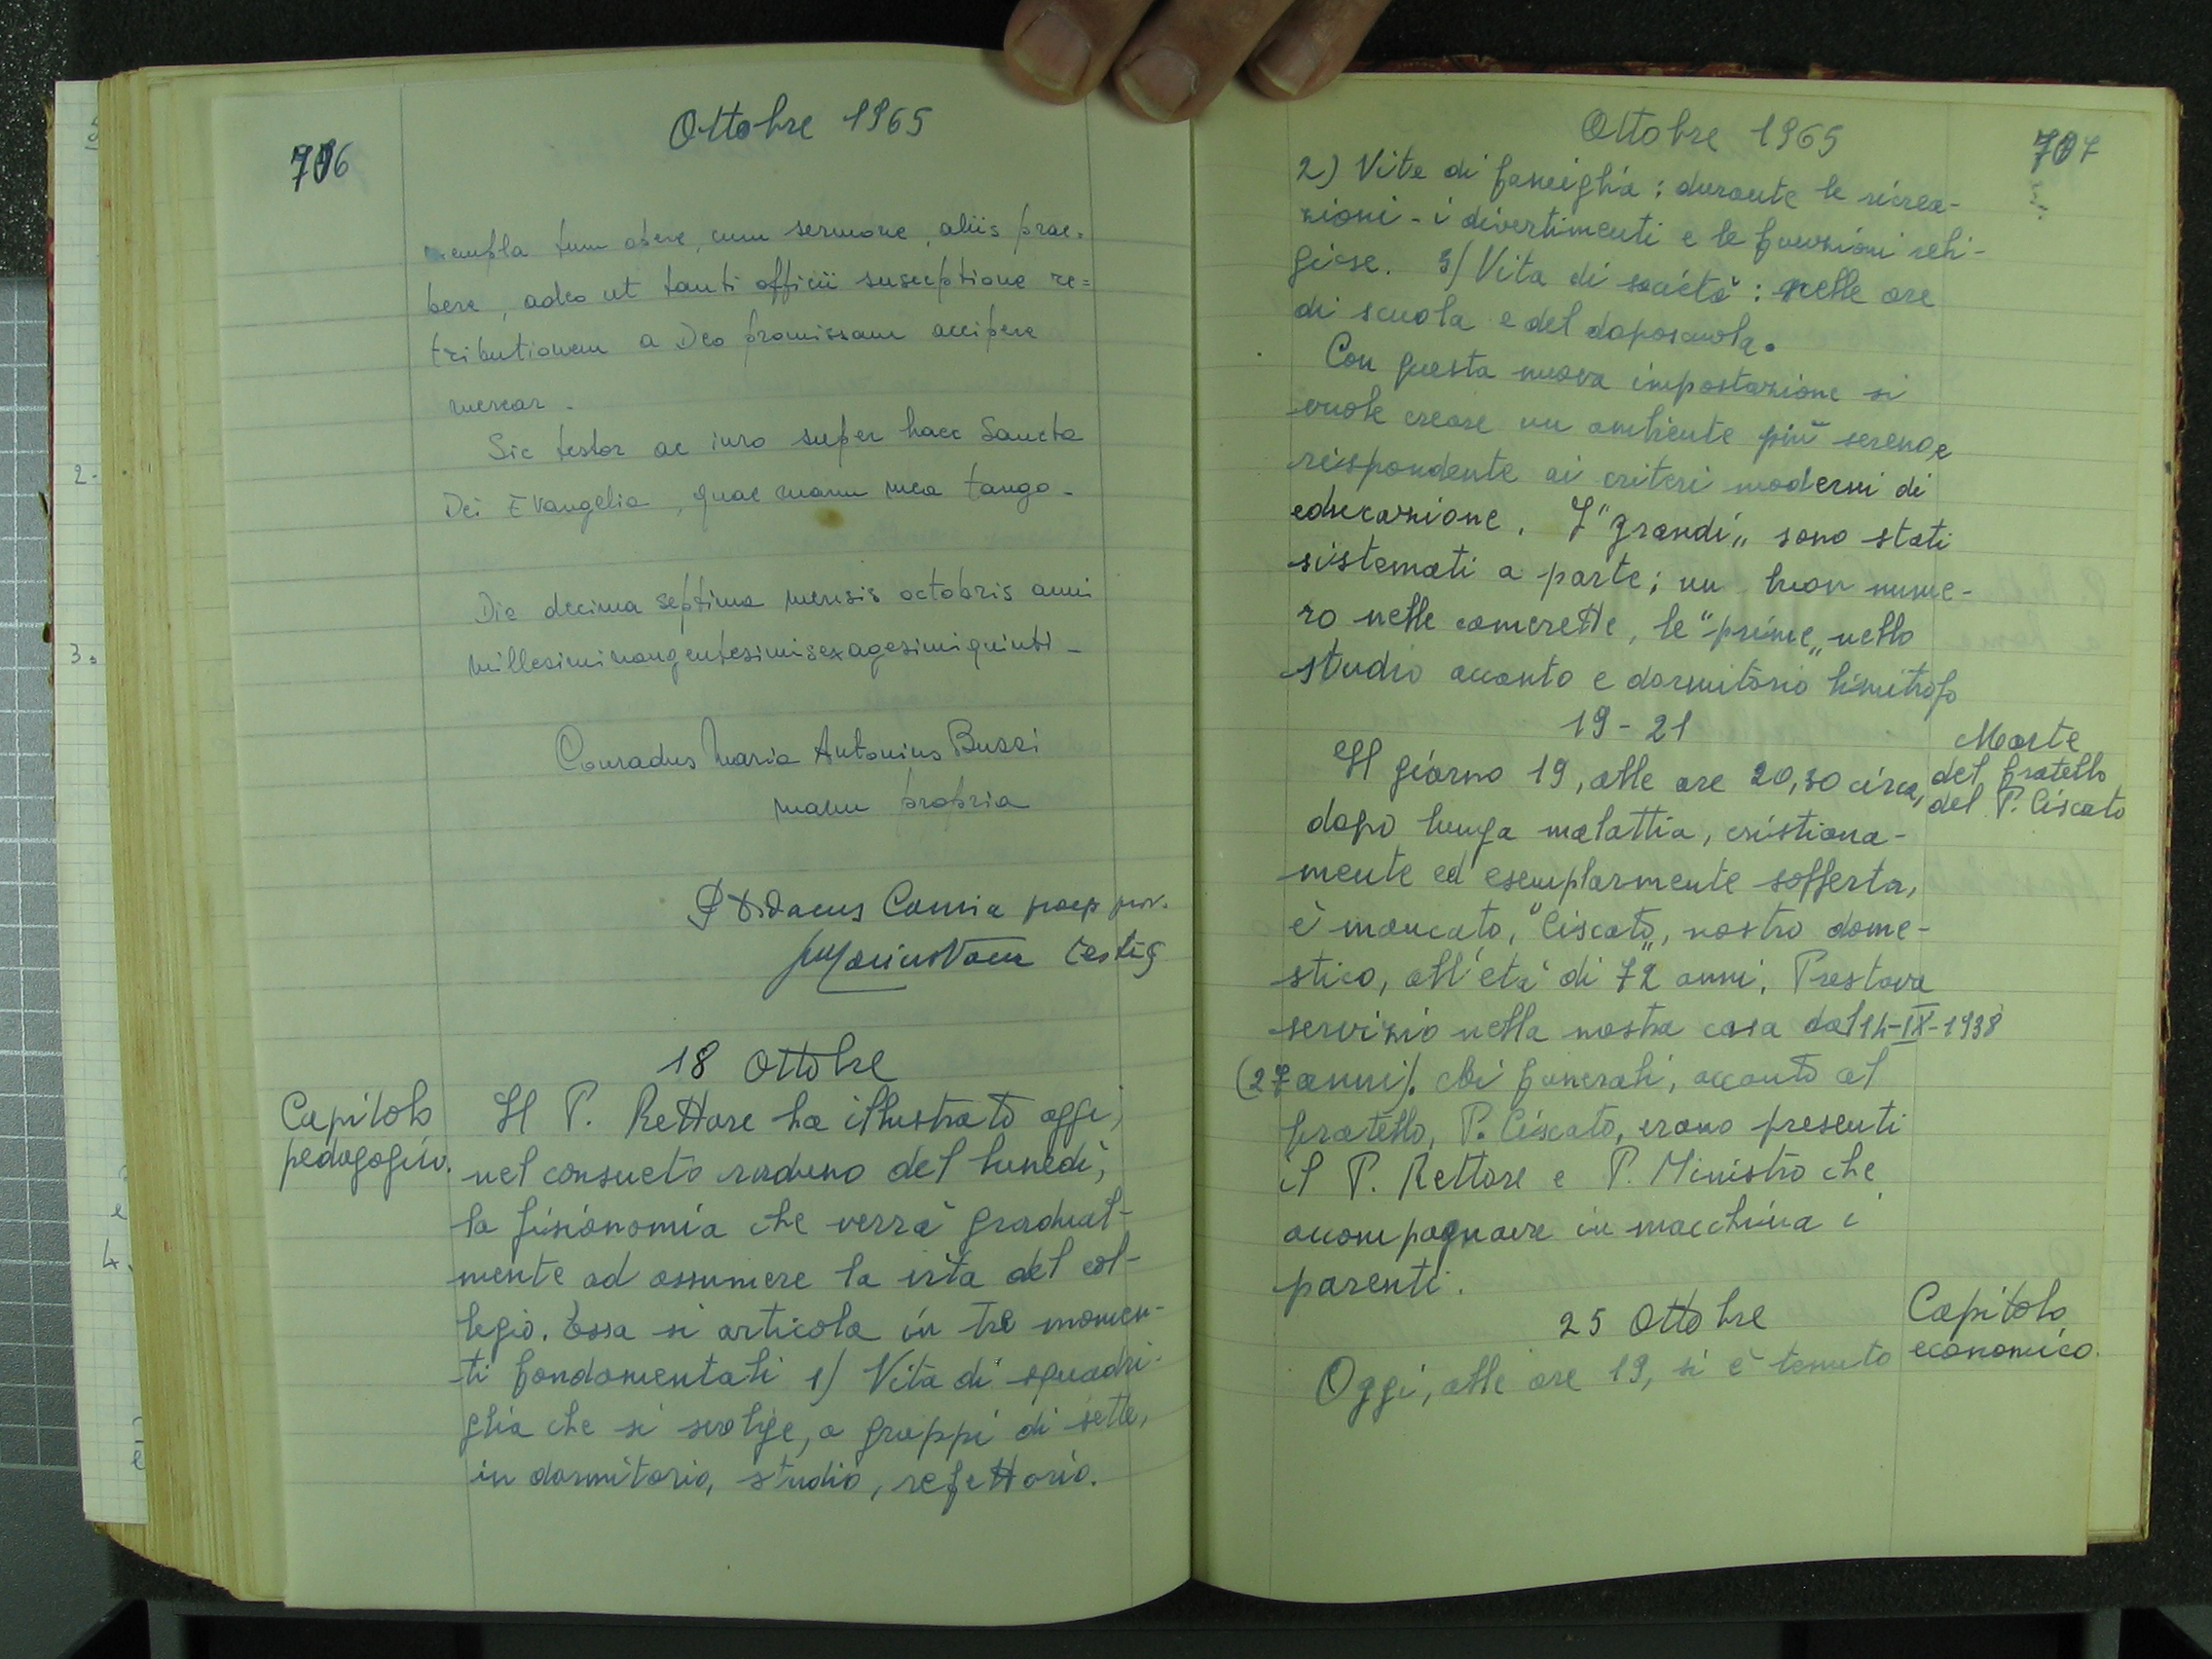 Ottobre 1965
706
empla tum opere, cum sermone, aliis prae=
bere, adeo ut tanti officii susceptione re=
tributionem a Deo promissam accipere
merear.
Sic testor ac iuro super haec Sancta
Dei Evangelia, quae manu mea tango.
Die decima septima mensis octobris anni
millesiminongentesimisexagesimiquinti.
Conradus Maria Antonius Bussi
manu propria
Didacus praep
testis
18 Ottobre
Capitolo
pedagogico.
Il P. Rettore ha illustrato oggi,
nel consueto raduno del lunedì,
la fisionomia che verrà gradual-
mente ad assumere la vita del col-
legio. Essa si articola in tre momen-
ti fondamentali 1) Vita di squadri-
glia che si svolge, a gruppi di sette,
in dormitorio, studio, refettorio.
Ottobre 1965
707
2) Vita di famiglia: durante le ricrea-
zioni - i divertimenti e le funzioni reli-
giose. 3) Vita di società: nelle ore
di scuola e del doposcuola.
Con questa nuova impostazione si
vuole creare un ambiente più sereno e
rispondente ai criteri moderni di
educazione. I "grandi" sono stati
sistemati a parte; un buon nume-
ro nelle camerette, le "prime" nello
studio accanto e dormitorio limitrofo
19-21
Morte
del fratello
del P. Ciscato
Il giorno 19, alle ore 20,30 circa,
dopo lunga malattia, cristiana-
mente ed esemplarmente sofferta,
è mancato, "Ciscato", nostro dome-
stico, all'età di 72 anni. Prestava
servizio nella nostra casa dal 14-IX-1938
(27 anni). Ai funerali, accanto al
fratello, P. Ciscato, erano presenti
il P. Rettore e P. Ministro che
accompagnare in macchina i
parenti.
25 Ottobre
Capitolo
economico.
Oggi, alle ore 19, si è tenuto